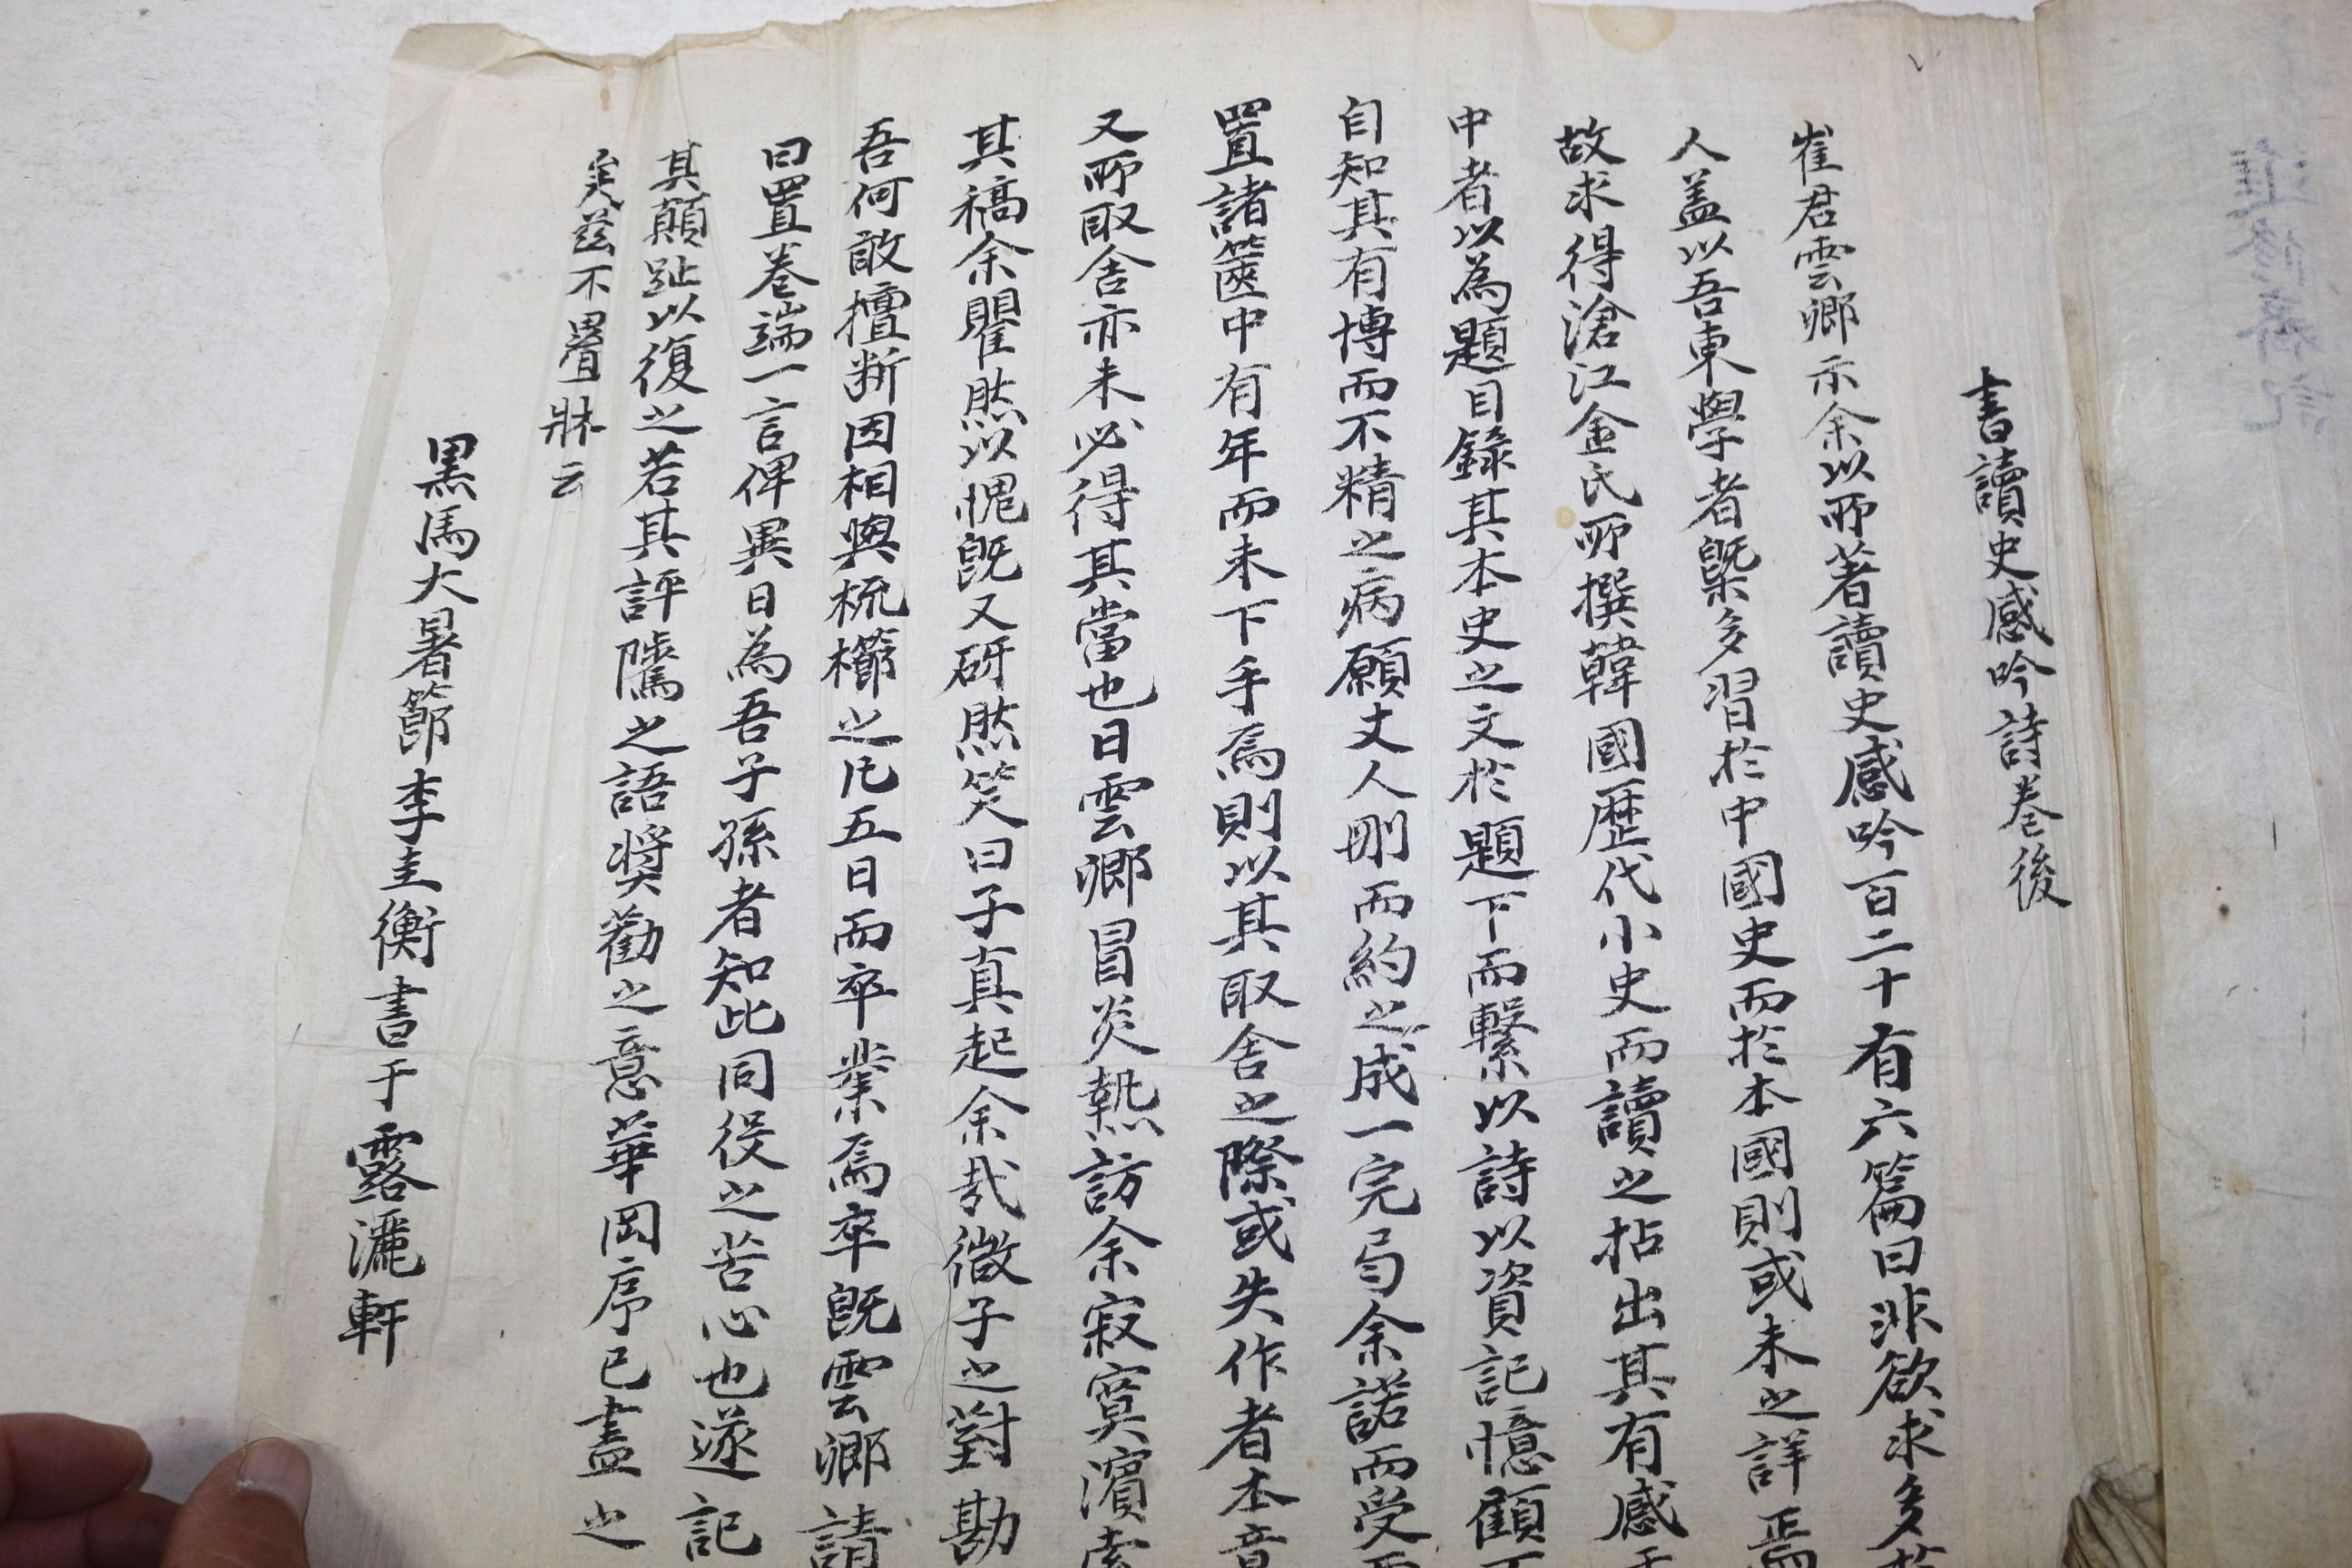 書讀史感吟詩卷後
崔君雲鄉示余以所著讀史感吟百二十有六篇曰非欲求多於
人盖以吾東學者槩多習於中國史而於本國則或未之詳焉
故求得滄江金氏所撰韓國歷代小史而讀之拈出其有感于
中者以為題目錄其本史之文於題下而繫以詩以資記憶顧
自知其有博而不精之病願丈人刪而約之成一完局余諾而受而
置諸篋中有年而未下手焉則以其取舍之際或失作者本意
又所取舍亦未必得其當也日雲鄉冒炎熱訪余寂寞濱索
其稿余瞿然以愧旣又硏然笑曰子真起余哉微子之對勘
吾何敢擅斷因相與梳櫛之凡五日而卒業焉卒旣雲鄉請
曰置卷端一言俾異日為吾子孫者知此同役之苦心也遂記
其顛趾以復之若其評騭之語奬勸之意華岡序已盡之
矣玆不疊牀云
黑馬大暑節李圭衡書于露灑軒